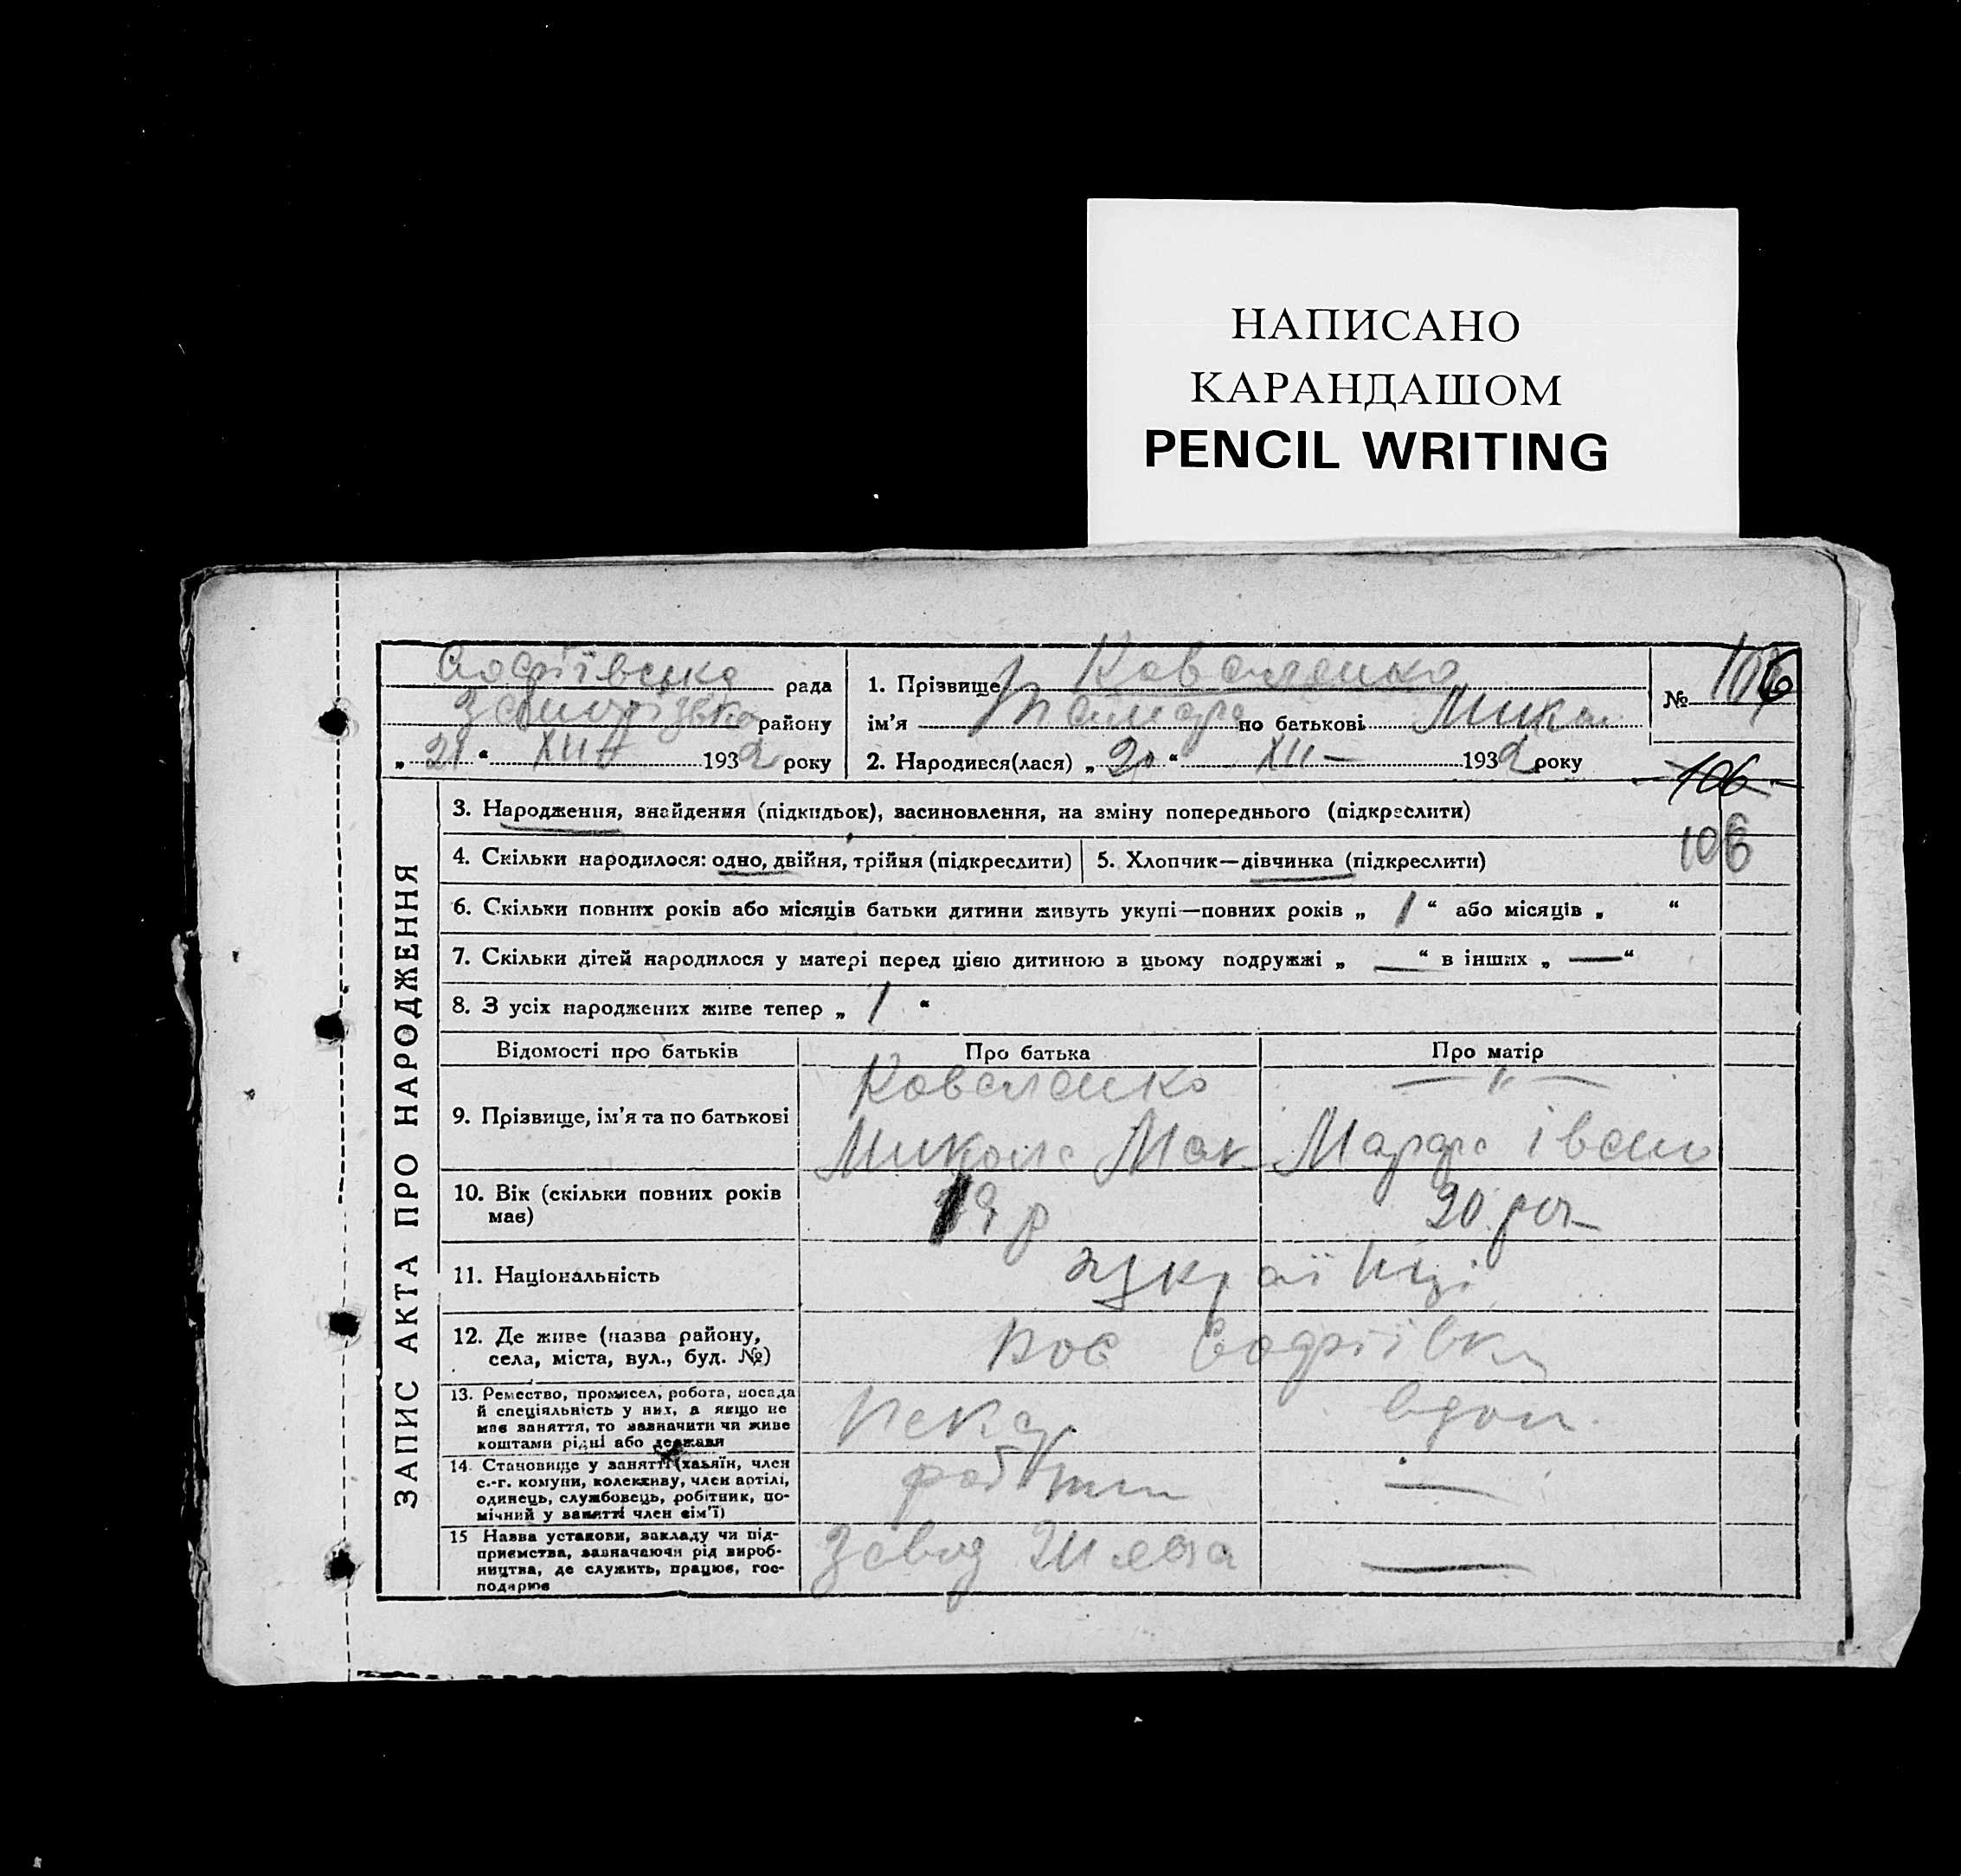 НАПИСАНО
КАРАНДАШОМ
PENCIL WRITING
Софіївська рада
Запорізька району
„ 21 “ XII 1932 року
1. Прізвище Коваленко
ім’я Тамара по батькові Мика
2. Народився(лася) „ 20 “ XII — 1932 року
№ 106
106
106
ЗАПИС АКТА ПРО НАРОДЖЕННЯ
3. Народження, знайдення (підкидьок), засиновлення, на зміну попереднього (підкреслити)
4. Скільки народилося: одно, двійня, трійня (підкреслити)
5. Хлопчик—дівчинка (підкреслити)
6. Скільки повних років або місяців батьки дитини живуть укупі—повних років „ 1 “ або місяців „ “
7. Скільки дітей народилося у матері перед цією дитиною в цьому подружжі „ — “ в інших „ — “
8. З усіх народжених живе тепер „ 1 “
Відомості про батьків
Про батька
Про матір
9. Прізвище, ім’я та по батькові
Коваленко
Микола Мак
— „ —
Марфа Іван
10. Вік (скільки повних років
має)
19 р
20 рок
11. Національність
українці
12. Де живе (назва району,
села, міста, вул., буд. №)
пос Софіївка
13. Ремество, промисел, робота, посада
й спеціяльність у них, а якщо не
має заняття, то зазначити чи живе
коштами рідні або держави
Пекар
вдом.
14. Становище у занятті (хазяїн, член
с.-г. комуни, колективу, член артілі,
одинець, службовець, робітник, по-
мічний у занятті член сім’ї)
робітни
—
15 Назва установи, закладу чи під-
приємства, зазначаючи рід вироб-
ництва, де служить, працює, гос-
подарює
Завод
—